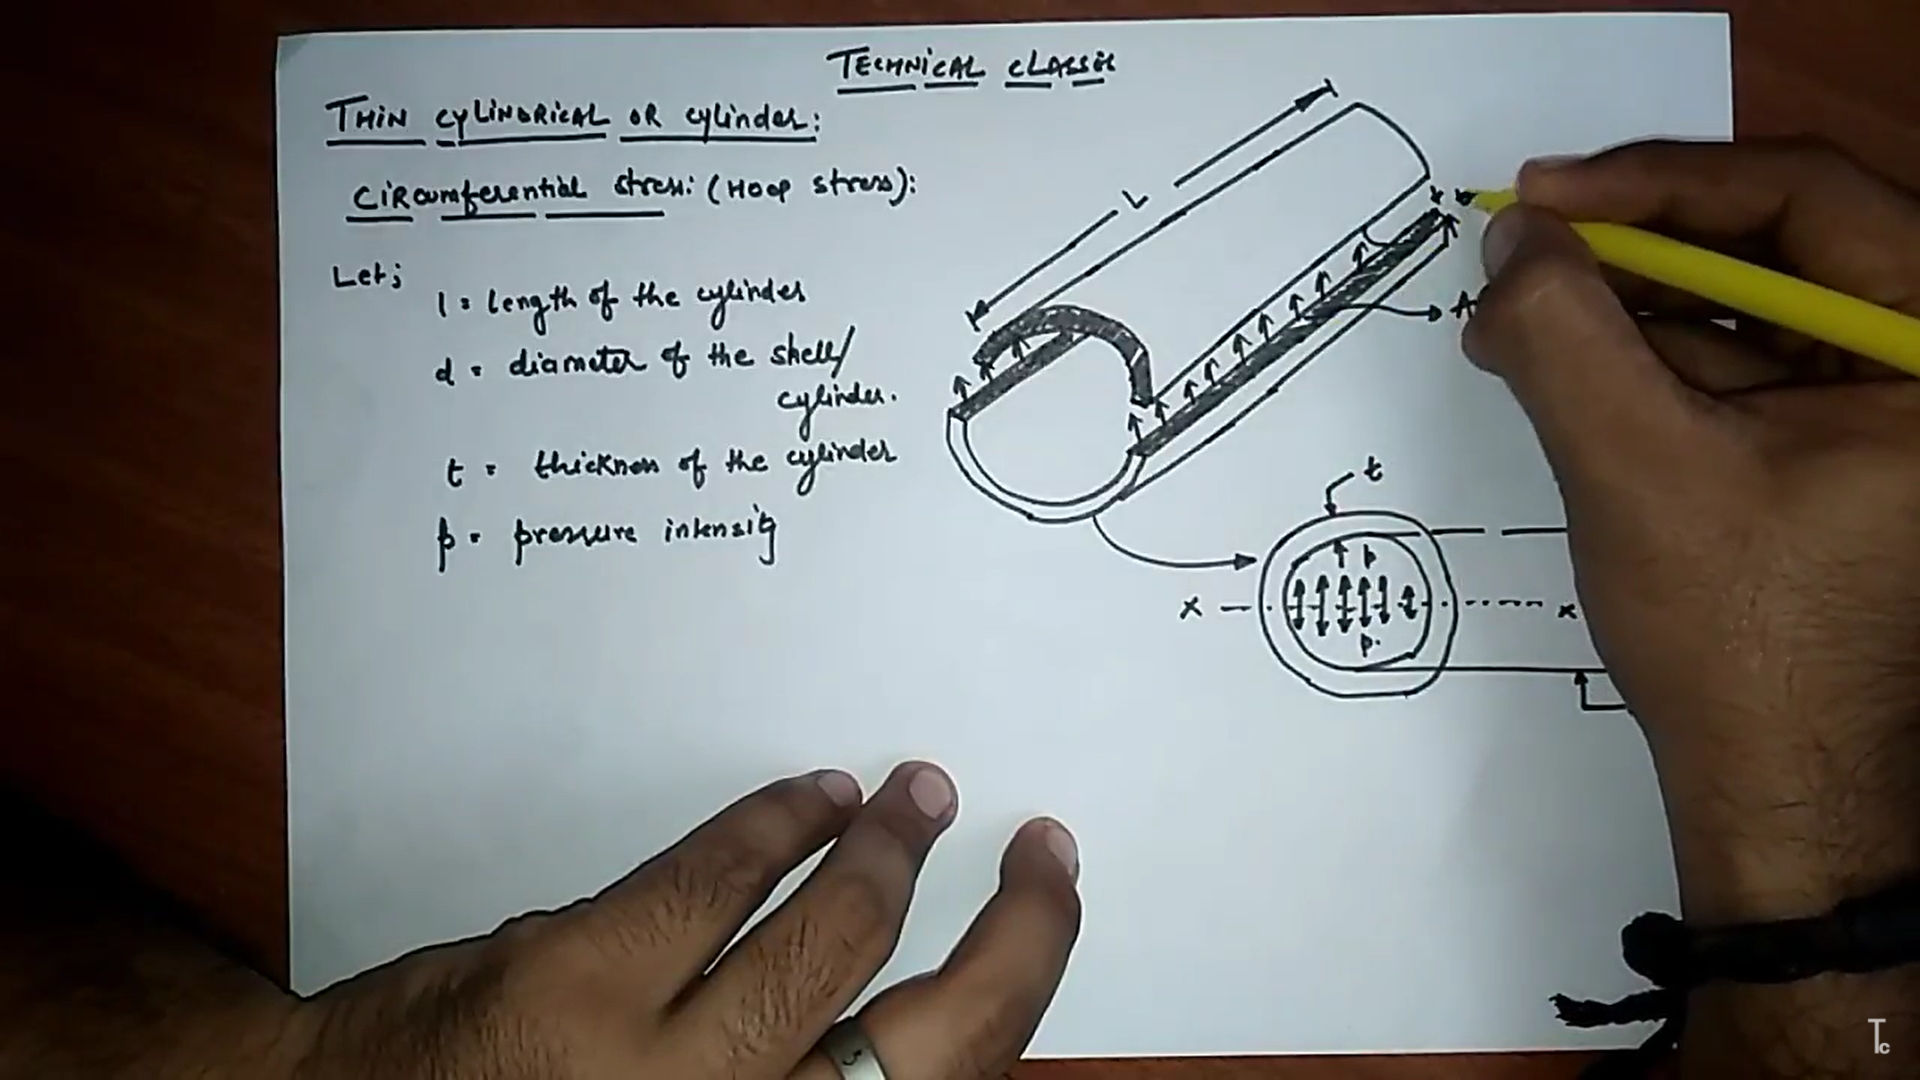 TECHNICAL CLASSES
THIN CYLINDRICAL OR cylinder:
CIRcumferential stress: (HOOP stress):
Let;
l = length of the cylinder
d = diameter of the shell/
cylinder.
t = thickness of the cylinder
p = pressure intensity
L
A
t
p
x
x
p.
Tc